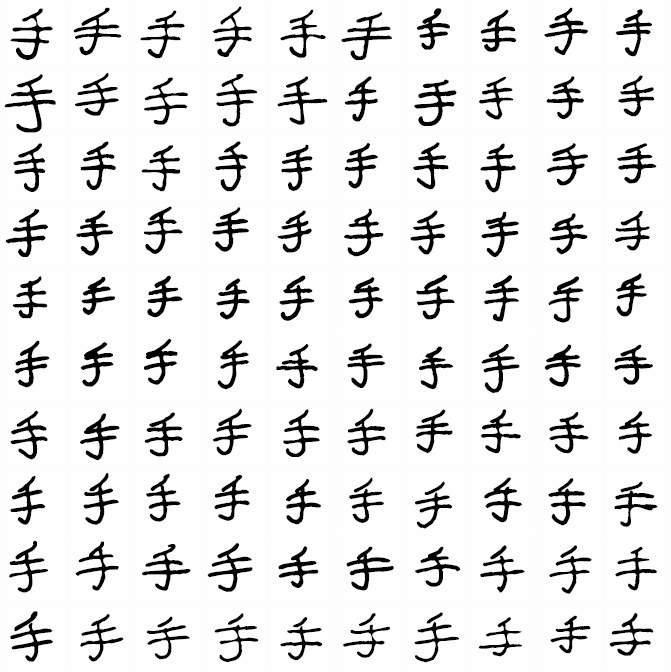 手手手手手手手手手手
手手手手手手手手手手
手手手手手手手手手手
手手手手手手手手手手
手手手手手手手手手手
手手手手手手手手手手
手手手手手手手手手手
手手手手手手手手手手
手手手手手手手手手手
手手手手手手手手手手